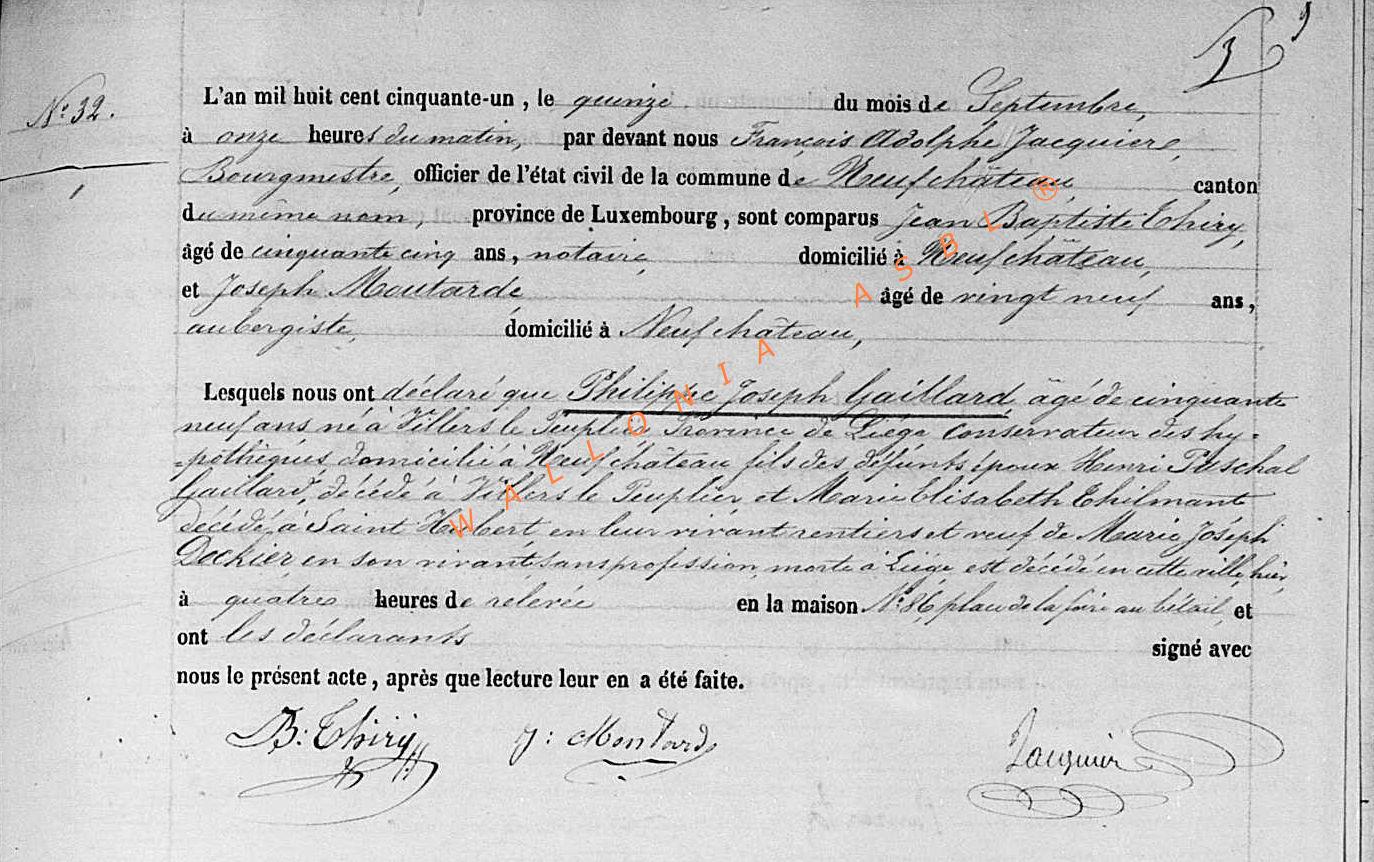 3 9
N° 32.
L'an mil huit cent cinquante-un, le quinze du mois de Septembre,
à onze heures du matin, par devant nous François Adolphe Jacquier,
Bourgmestre, officier de l'état civil de la commune de Neufchâteau, canton
du même nom, province de Luxembourg, sont comparus Jean Baptiste Thiry,
âgé de cinquante cinq ans, notaire, domicilié à Neufchâteau,
et Joseph Moutarde âgé de vingt neuf ans,
aubergiste, domicilié à Neufchâteau,
Lesquels nous ont déclaré que Philippe Joseph Gaillard, âgé de cinquante
neuf ans né à Villers le Peuplier Province de Liége Conservateur des hy-
-pothèques domicilié à Neufchâteau fils des défunts époux Henri Paschal
Gaillard, décédé à Villers le Peuplier, et Marie Elisabeth Thilmant
décédé à Saint Hubert, en leur vivant rentiers et veuf de Marie Joseph
Dechier en son vivant sans profession, morte à Liége est décédé en cette ville, hier,
à quatre heures de relevée en la maison N° 86, place de la foire au bétail, et
ont les déclarants signé avec
nous le présent acte, après que lecture leur en a été faite.
B. Thiry J: Moutarde Jacquier
WALLONIA ASBL ®